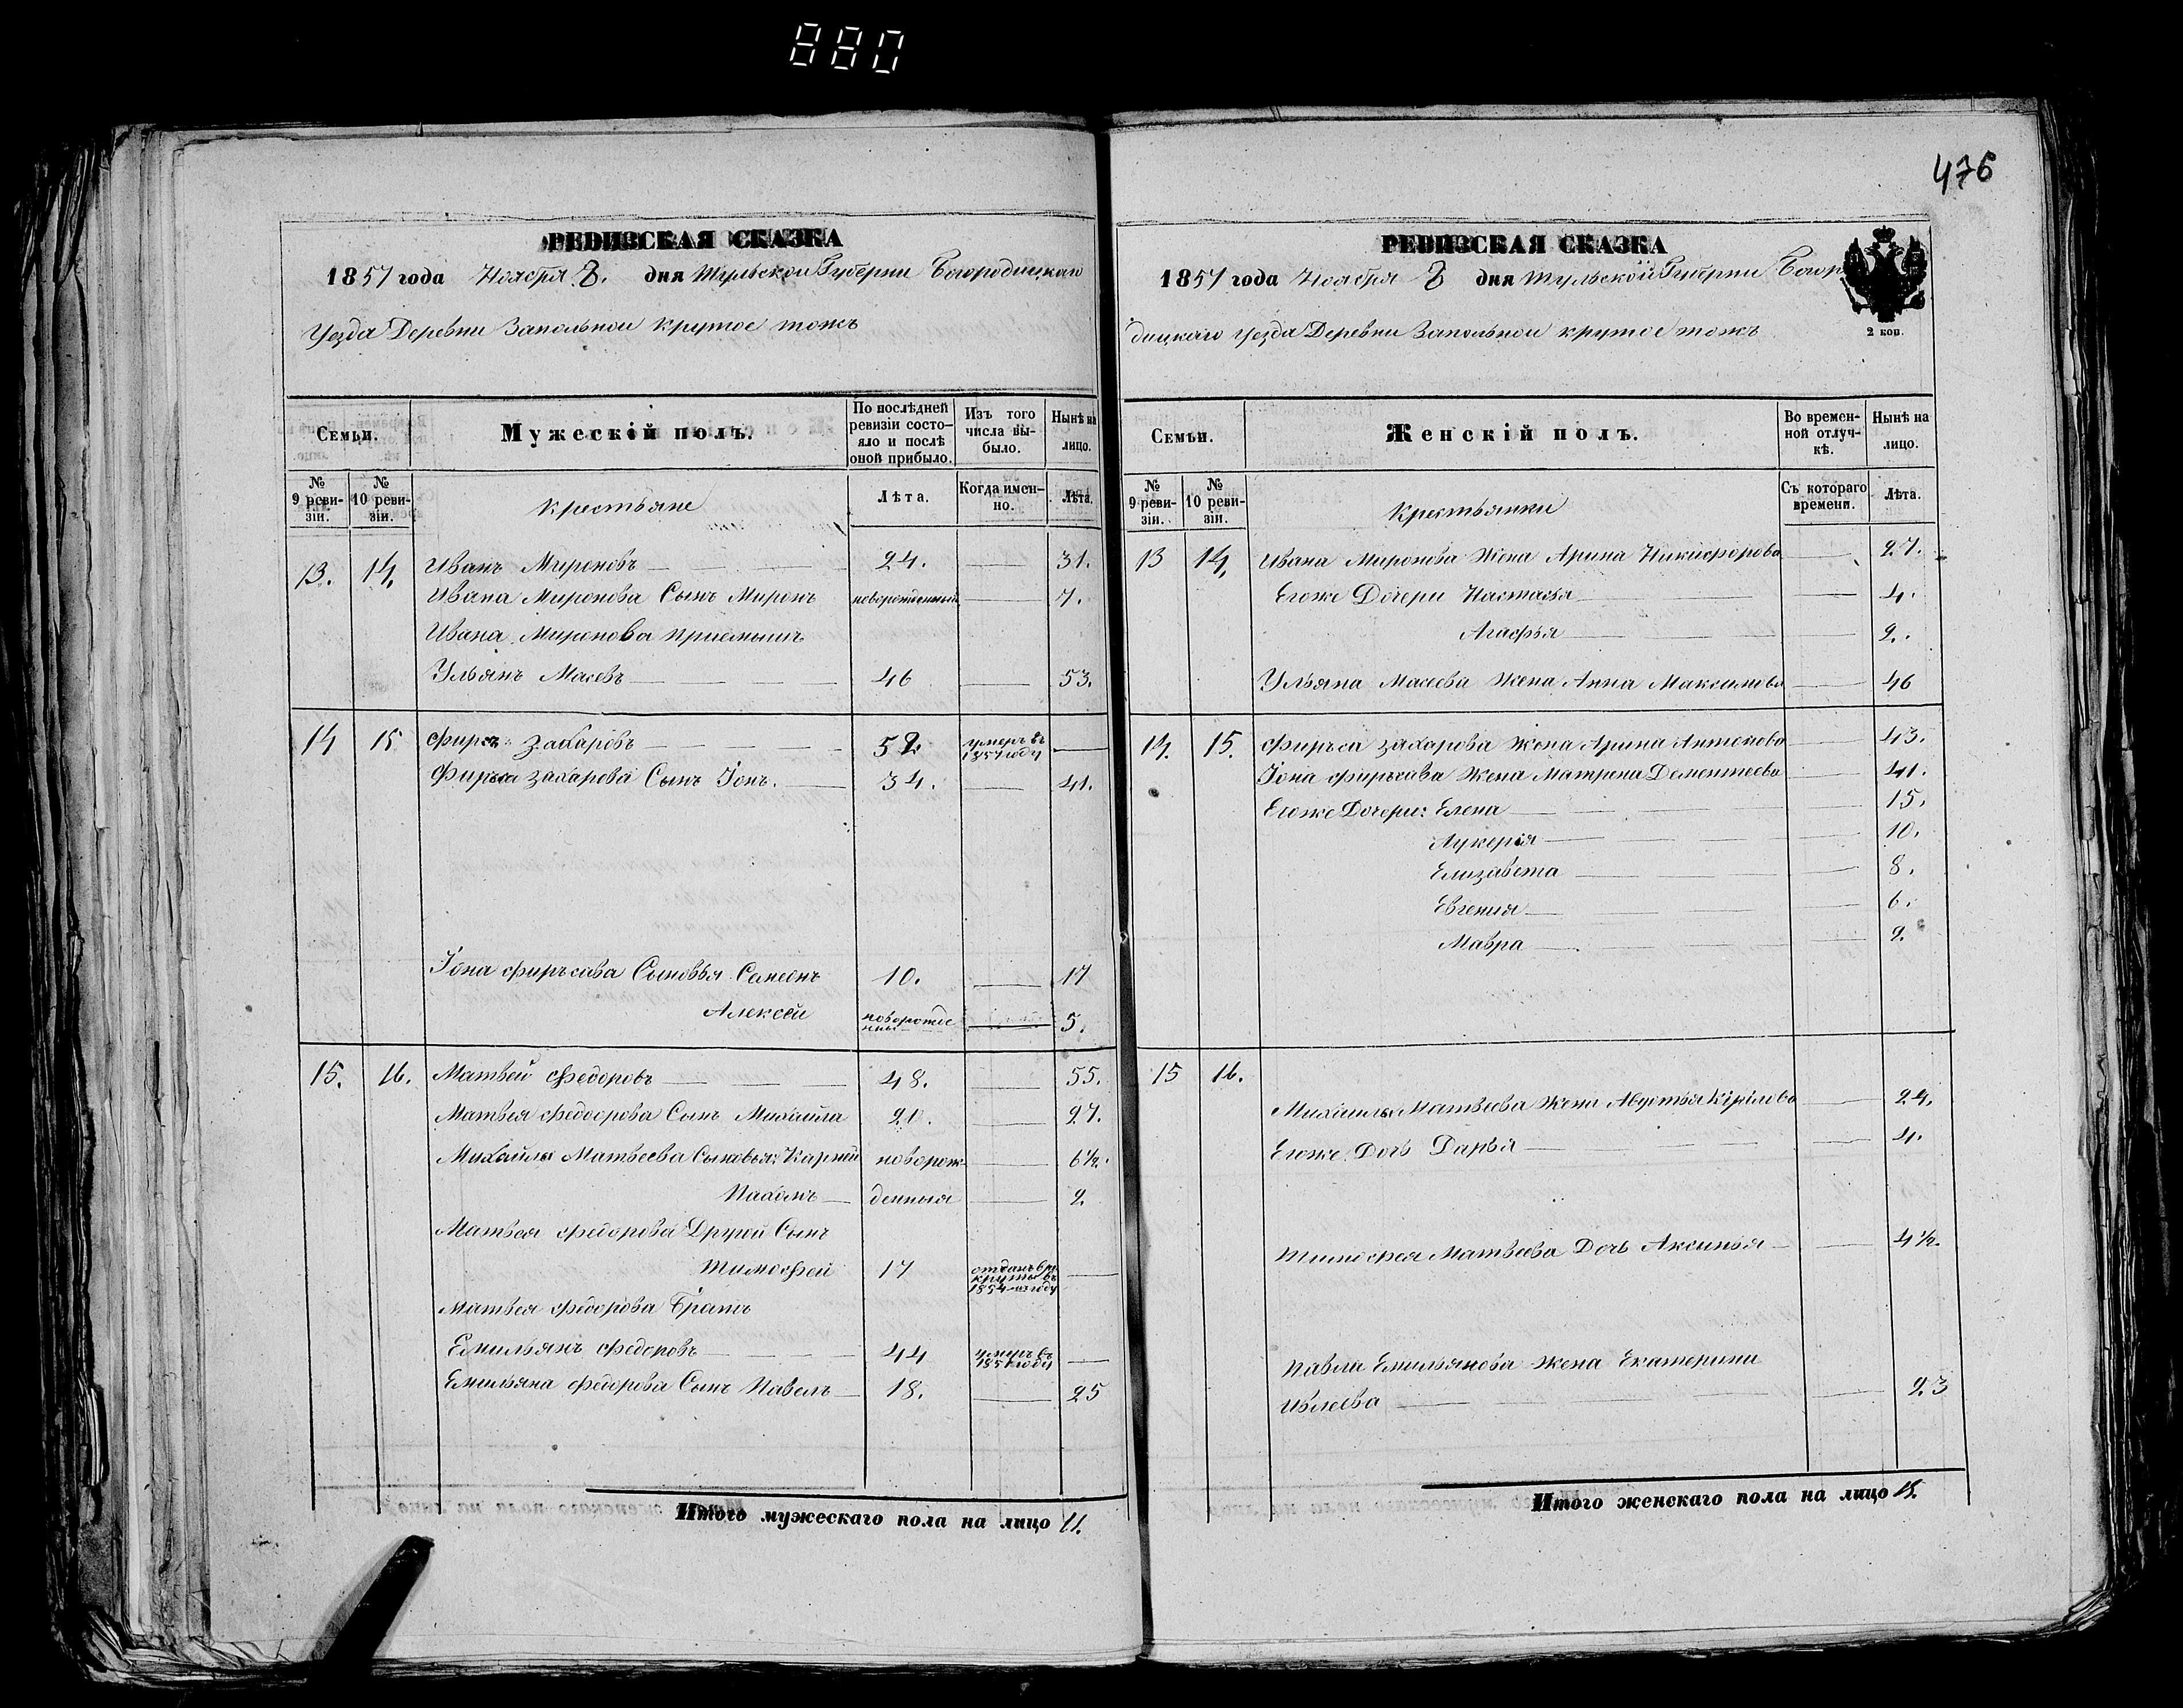 880
476
РЕВИЗСКАЯ СКАЗКА
1857 года Ноября 8. дня Тульской Губерни Богородицкаго
Уезда Деревни Запольной крутое тожъ
Семьи. Мужескій полъ. По послѣдней ревизіи состояло и послѣ оной прибыло. Изъ того числа выбыло. Нынѣ на лицо.
№ 9 ревизіи. № 10 ревизіи. Крестьяне Лѣта. Когда именно. Лѣта.
13. 14. Иванъ Мироновъ 24. 31.
Ивана Миронова Сынъ Миронъ новорожденный 7.
Ивана Миронова приемышъ
Ульянъ Масевъ 46 53.
14 15 Фирсъ Захаровъ 52. умеръ въ 1857 году
Фирса Захарова Сынъ Іонъ. 34. 41.
Іона фирьсава Сыновья Семеонъ 10. 17
Алексей новорожденный 5.
15. 16. Матвей Федоровъ 48. 55.
Матвея Федорова Сынъ Михайла 20. 27.
Михайлы Матвеева Сыновья: Карпей новорож- 6½.
Пахомъ денныя 2.
Матвея федорова Другой Сынъ
Тимофей 17 отданъ в рекруты въ 1854 году
Матвея федорова Братъ
Емильянъ Федоровъ 44 умеръ въ
Емильяна федорова Сынъ Павелъ 18. 25
Итого мужескаго пола на лицо 11.
РЕВИЗСКАЯ СКАЗКА
1857 года Ноября 8 дня Тульской Губерни Богор
2 коп.
дицкаго Уезда Деревни Запольной крутое тожъ
Семьи. Женскій полъ. Во временной отлучкѣ. Нынѣ на лицо.
№ 9 ревизіи. № 10 ревизіи. Крестьянки Съ котораго времени. Лѣта.
13 14. Ивана Миронова Жена Арина Никифорова 27.
Егоже Дочери Настасья 4.
Агафья 2.
Ульяна Масева Жена Анна Максимова 46
14. 15. Фирьса Захарова Жена Арина Антонова 43.
Іона фирьсава Жена Матрена Дементеева 41.
Егоже Дочери: Елена 15.
Лукерія 10.
Елизавета 8.
Евгения 6.
Мавра 2.
15 16.
Михайлы Матвеева Жена Авдотья Кірілова 24.
Егоже Дочь Дарья 4.
Тимофея Матвеева Дочь Аксинья 4½.
Павла Емильянова Жена Екатерина
Ивлеева 23
Итого женскаго пола на лицо